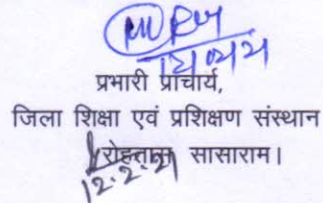 प्रभारी प्राचार्य,
जिला शिक्षा एवं प्रशिक्षण संस्थान
रोहतास सासाराम।
12.2.21